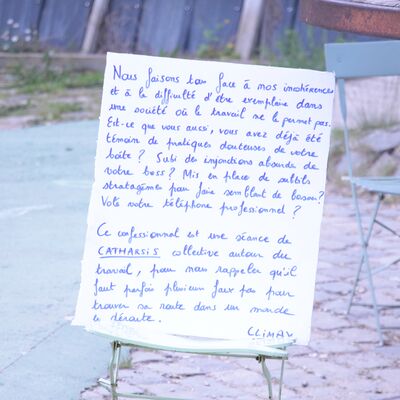 Nous faisons tous face à nos incohérences
et à la difficulté d'être exemplaire dans
une société où le travail ne le permet pas.
Est-ce que vous aussi, vous avez déjà été
témoin de pratiques douteuses de votre
boîte ? Subi des injonctions absurdes de
votre boss ? Mis en place de subtils
stratagèmes pour faire semblant de bosser ?
Volé votre téléphone professionnel ?
Ce confessionnal est une séance de
CATHARSIS collective autour du
travail, pour nous rappeler qu'il
faut parfois plusieurs faux pas pour
trouver sa route dans un monde
en déroute.
CLIMAX